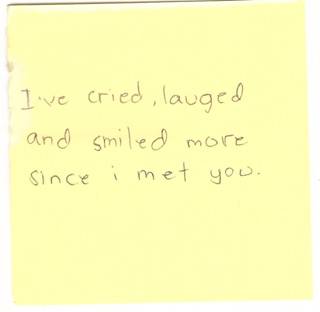 I've cried, lauged
and smiled more
since i met you.